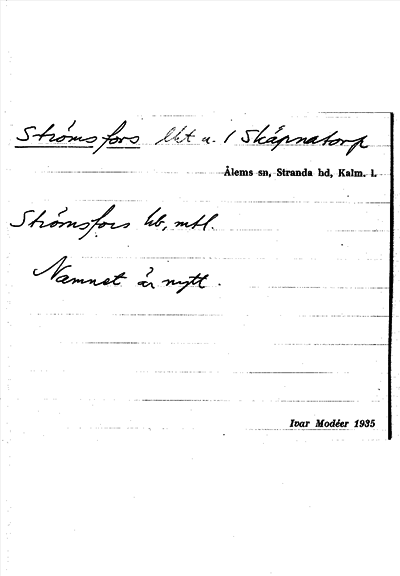 Strömsfors lht u. 1 Skäpnatorp
Ålems sn, Stranda hd, Kalm. l.
Strömsfors kb, mtl.
Namnet är nytt.
Ivar Modéer 1935